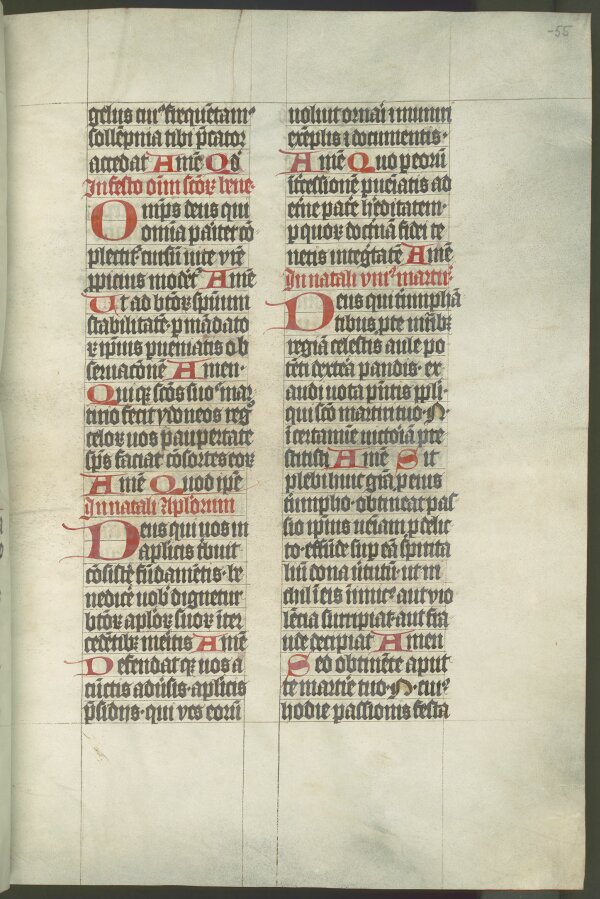 -55
gelus cui⁹ freque̅tam⁹
solle̅pnia tibi p̅cator
accedat Ame̅ Qd̅
In festo oi̅m sc̅oꝝ bene
Omp̅s deus qui
om̅ia pariter co̅
plectit̉ cursu̅ uite vr̅e
ꝓpicius moder̉ Ame̅
Ut ad bt̅oꝝ spi̅uum
stabilitate̅ p mandato
ꝝ ipsius pueniatis ob
seruac̅one̅ Amen·
Quiqꝫ sc̅os suo⁹ mar
tirio fecit ydoneos reg̅
celoꝝ uos p̲ paupertate̅
sp̅s faciat co̅sortes eoꝝ
Ame̅ Quod ip̅e
In natali Aplorum
Deus qui uos in
aplicis t̉buit
co̅sist̉e fu̅dame̅tis· be
nedic̉e uob̅ dignetur
bt̅oꝝ aploꝝ suoꝝ int̉
cede̅tibꝫ meritis Ame̅
Defendatqꝫ uos a
cu̅ctis adủsis· aplicis
p̅sidijs· qui vos eoru̅
uoluit ornari muni̅i̅
exe̅plis ⁊ documentis·
Ame̅ Quo p eoru̅
i̅t̉cessione̅ pueiatis ad
et̉ne pat̉e h̉editatem·
p quoꝝ doctri̅a̅ fidei te
netis integ̉tate̅ Ame̅
In natali uni⁹ martir̉
Deus qui triumpha̅
tibus p te milit̉ibꝫ
regia̅ celestis aule po
te̅ti dext̉a pandis· ex
audi uota p̅ntis ppl̅i·
qui sc̅o martiri tuo ·N·
i̅ certamie̅ uictoia̅ p̅e
stitisti Ame̅ Sit
plebi huic gr̅a p̲enius
triumpho· obtineat pas
sio ipsius uenia̅ p delic
to· effu̅de sup ea̅ spirita
liu̅ dona uirtutu̅· ut ni
chil i̅ eis inimic⁹ aut vio
le̅cia surripiat· aut frau
ude decipiat Amen
Sed obtine̅te aput
te martire tuo ·N· cui⁹
hodie passionis festa